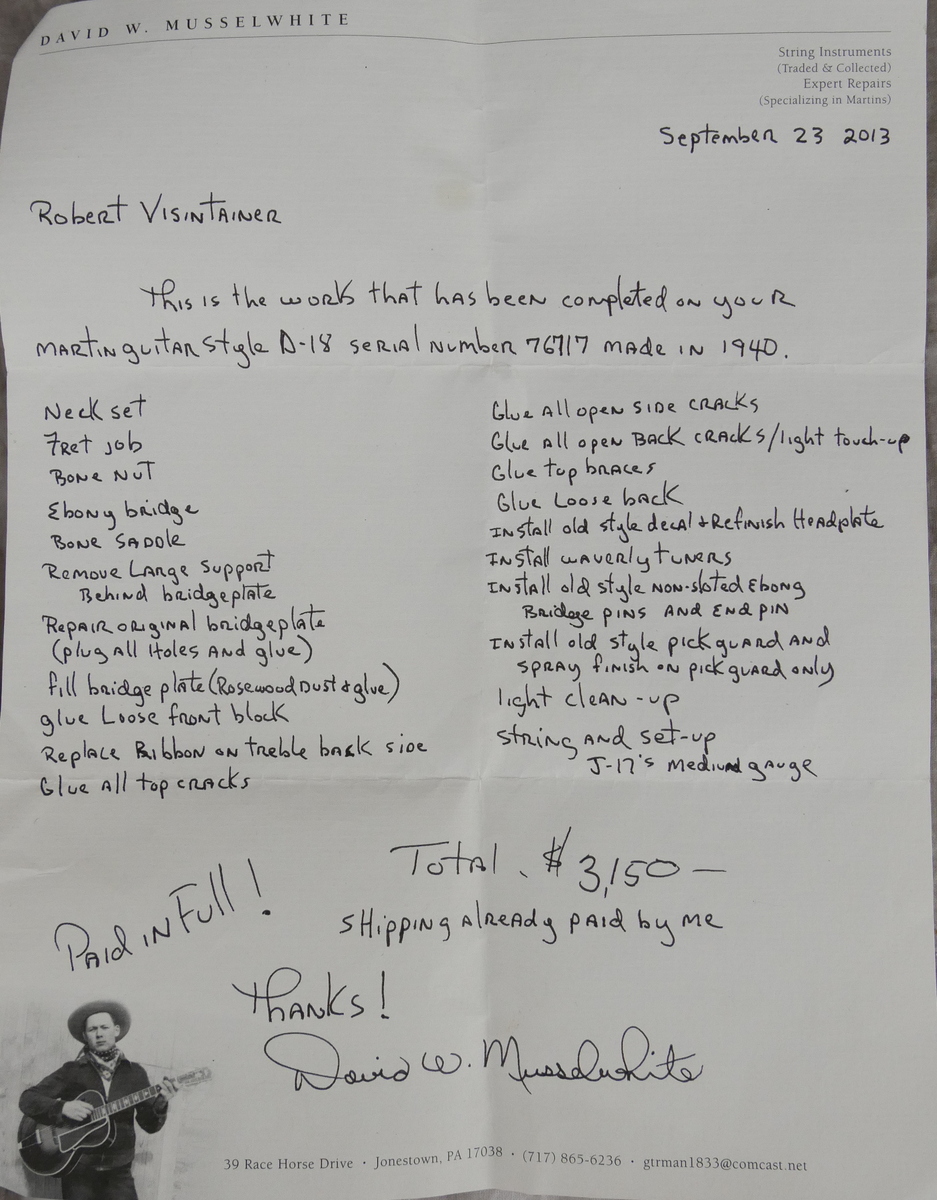 DAVID W. MUSSELWHITE
String Instruments
(Traded & Collected)
Expert Repairs
(Specializing in Martins)
September 23 2013
Robert Visintainer
This is the work that has been completed on your
Martin guitar Style D-18 serial number 76717 made in 1940.
Neck set
Fret job
Bone Nut
Ebony bridge
Bone Saddle
Remove Large Support
Behind bridgeplate
Repair original bridgeplate
(plug All Holes And glue)
fill bridge plate (Rosewood Dust & glue)
glue Loose front block
Replace Ribbon on treble back side
Glue All top cracks
Glue All open side cracks
Glue All open Back cracks/light touch-up
Glue top braces
Glue Loose back
Install old style decal & Refinish Headplate
Install waverly tuners
Install old style non-sloted Ebony
Bridge pins and end pin
Install old style pickguard and
spray finish on pickguard only
light clean-up
String and set-up
J-17's Medium gauge
Total. $3,150—
Shipping Already paid by me
Paid in Full!
Thanks!
David W. Musselwhite
39 Race Horse Drive · Jonestown, PA 17038 · (717) 865-6236 · gtrman1833@comcast.net